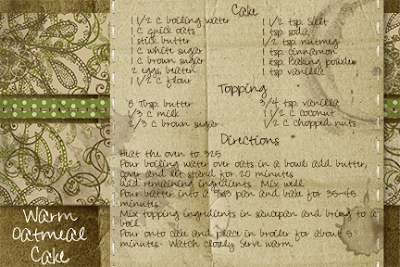 Cake
1 1/2 c boiling water 1 1/2 tsp. salt
1 c quick oats 1 tsp soda
1 stick butter 1/2 tsp nutmeg
1 c white sugar 1 tsp. cinnamon
1 c brown sugar 1 tsp. baking powder
2 eggs, beaten 1 tsp vanilla
1 1/2 c flour
Topping
8 Tbsp butter 3/4 tsp vanilla
1/3 c milk 1 1/2 c coconut
2/3 c brown sugar 1/2 c chopped nuts
Directions
Heat the oven to 325
Pour boiling water over oats in a bowl add butter,
cover and let stand for 20 minutes
Add remaining ingredients. Mix well
Pour batter into a 9x13 pan and bake for 35-45
minutes
Mix topping ingredients in saucepan and bring to a
boil
Pour onto cake and place in broiler for about 5
minutes. Watch closely. Serve warm.
Warm
Oatmeal
Cake